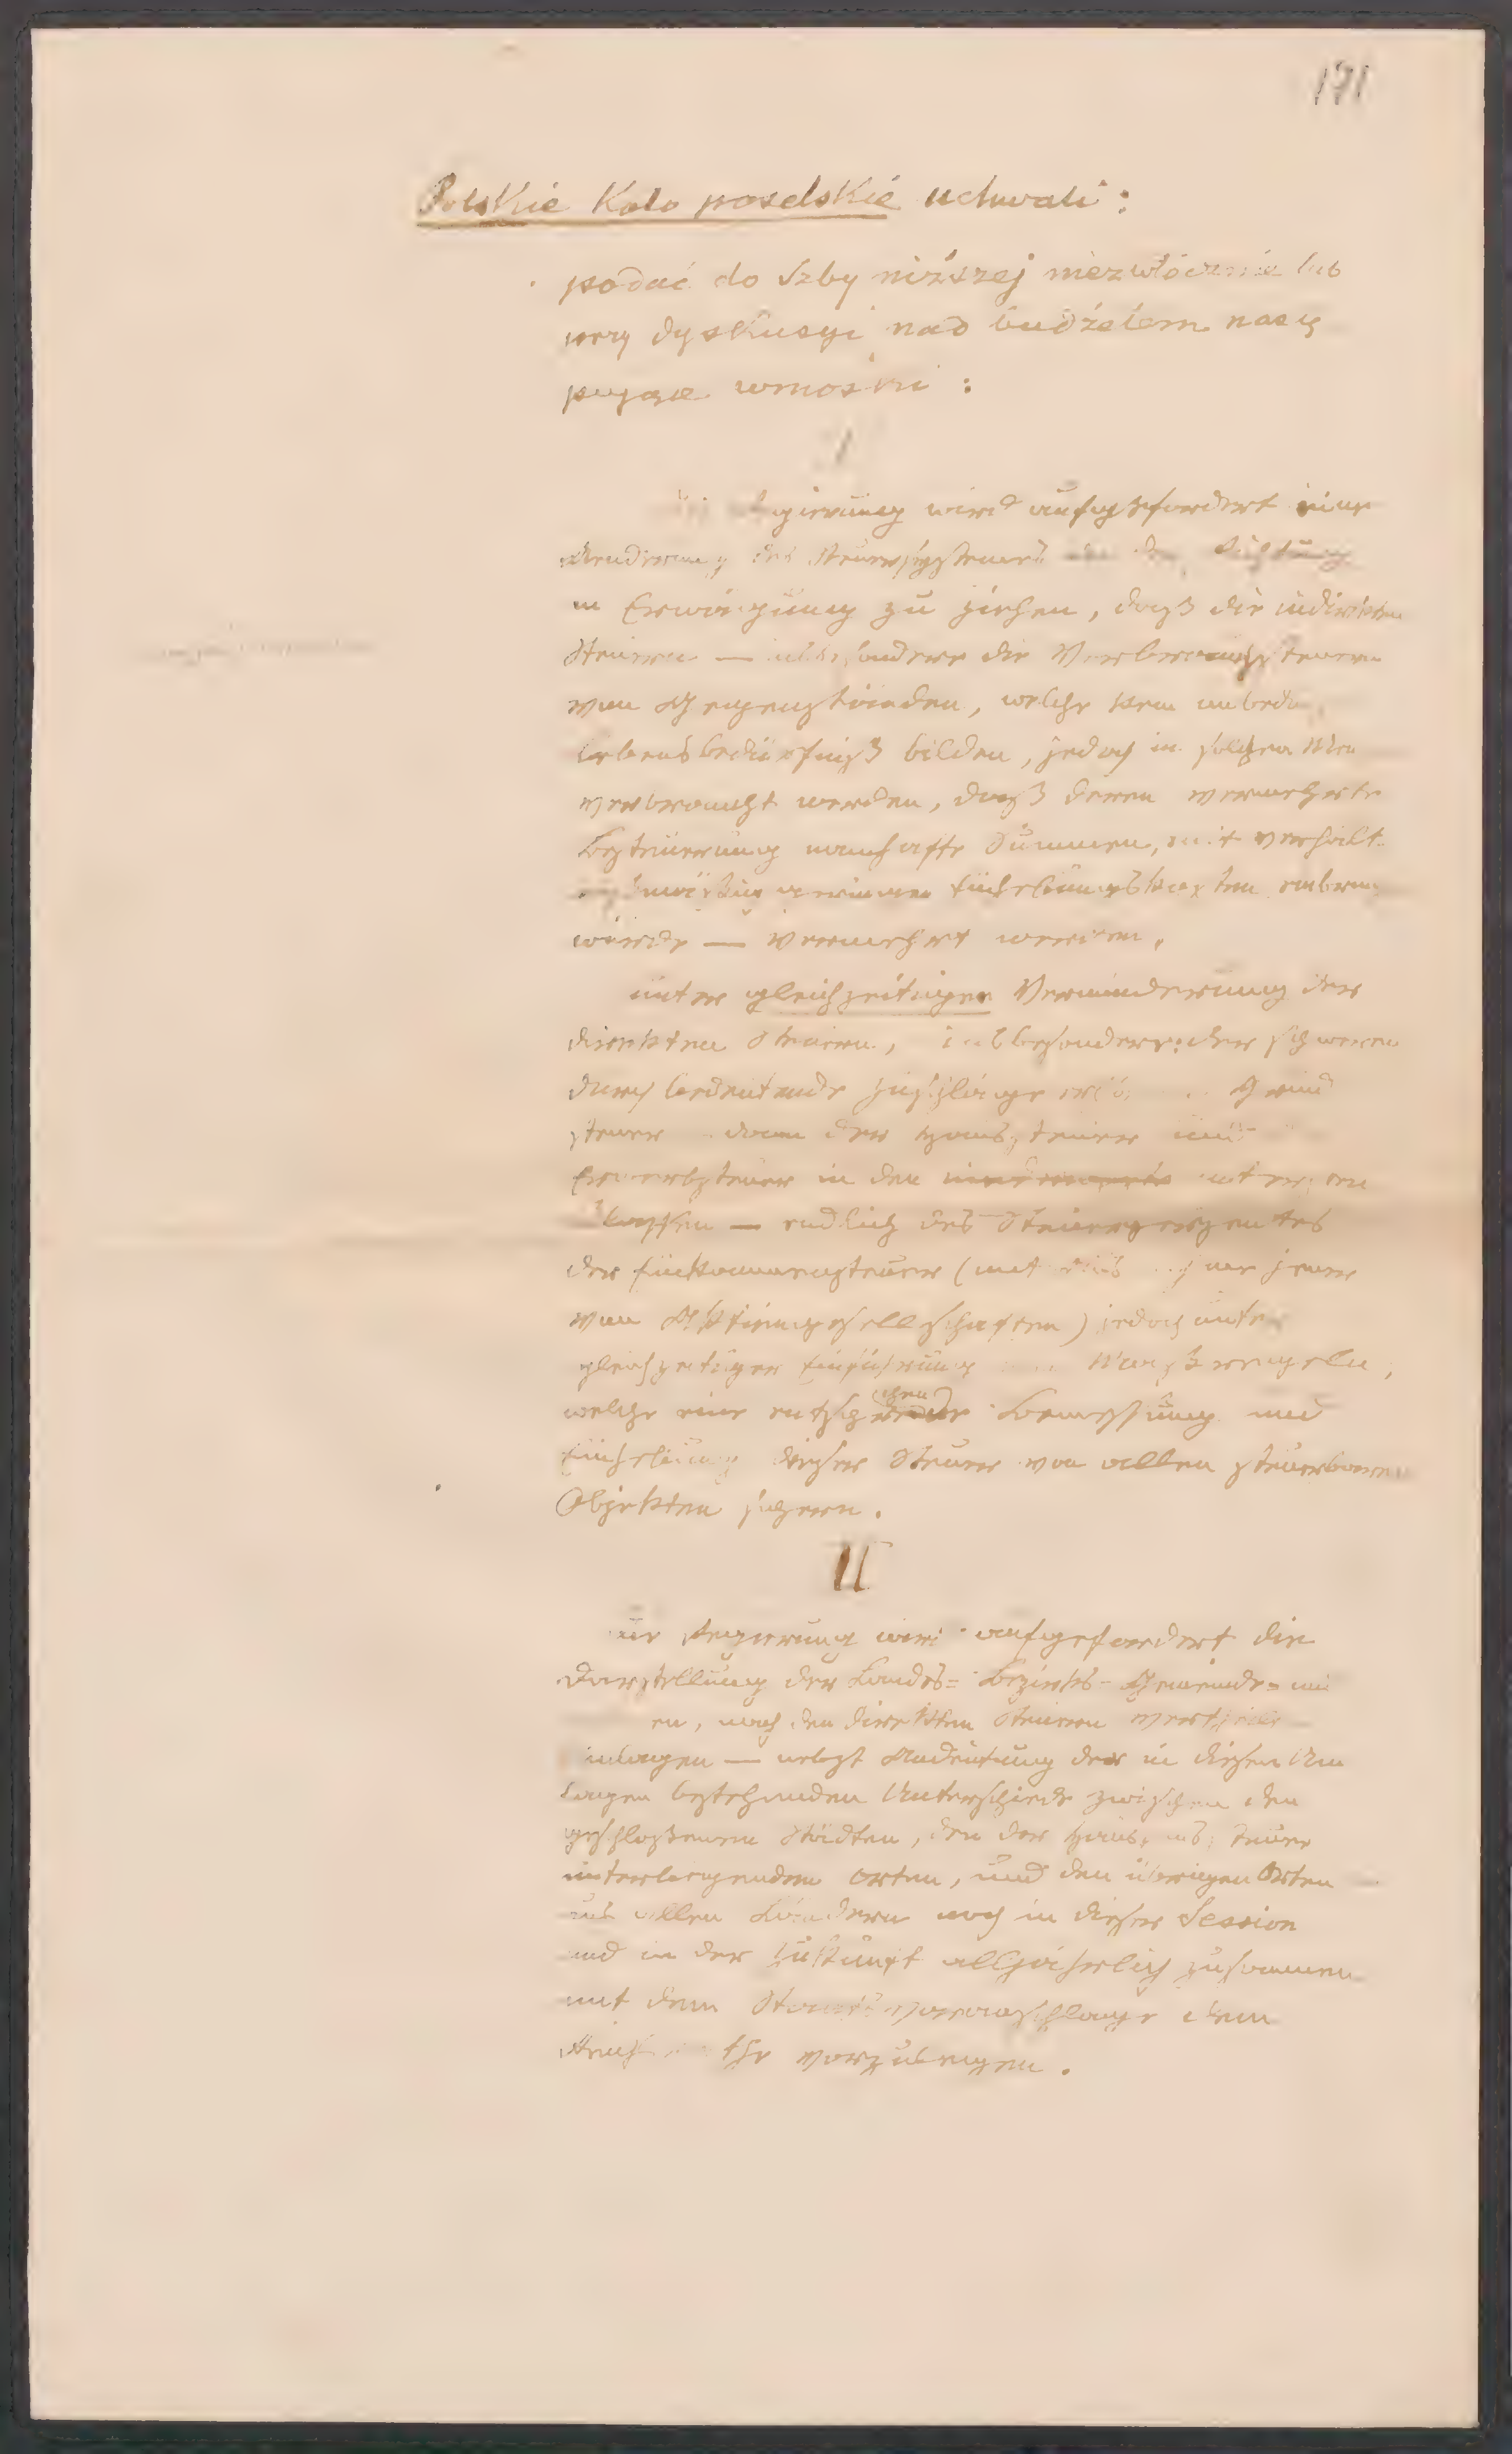 171
Polskie Koło poselskie uchwali:
podać do Izby niższej niezwłocznie lub
przy dyskusyi nad budżetem nastę
pujące wnioski:
I
gierung wird aufgefordert eine
Aenderung des Steuersystemes
in Erwägung zu ziehen, daß die indirekten
Steuern — insbesondere die Verbrauchssteuern
von Gegenständen, welche kein unbedi
Lebensbedürfniß bilden, jedoch in solchen Men
verbraucht werden, daß deren vermehrte
Besteuerung namhafte Summen, mit verhält
geringen Einhebungskosten
würde — vermehrt werden,
unter gleichzeitiger Verminderung der
direkten Steuern, insbesondere: der schweren
durch bedeutende Zuschläge Grund
steuer dann der Haussteuer und
Erwerbsteuer in den unteren
Klassen — endlich des Steuerperzentes
der Einkommensteuer (mit jener
von Aktiengesellschaften) jedoch unter
gleichzeitiger Einführung Maßregeln,
welche eine Bemessung und
Einhebung dieser Steuer von allen steuerbaren
Objekten sichern.
II
Die Regierung wird aufgefordert die
Darstellung der Landes- Bezirks- Gemeinde-
en, nach den direkten Steuern
umlagen — nebst Andeutung der in diesen Um
lagen bestehenden Unterschiede zwischen den
geschlossenen Städten, den der Hauszinssteuer
unterliegenden Orten, und den übrigen Orten
aus allen Ländern noch in dieser Session
und in der Zukunft alljährlich zusammen
mit dem Staatsvoranschlage dem
Reichsrathe vorzulegen.